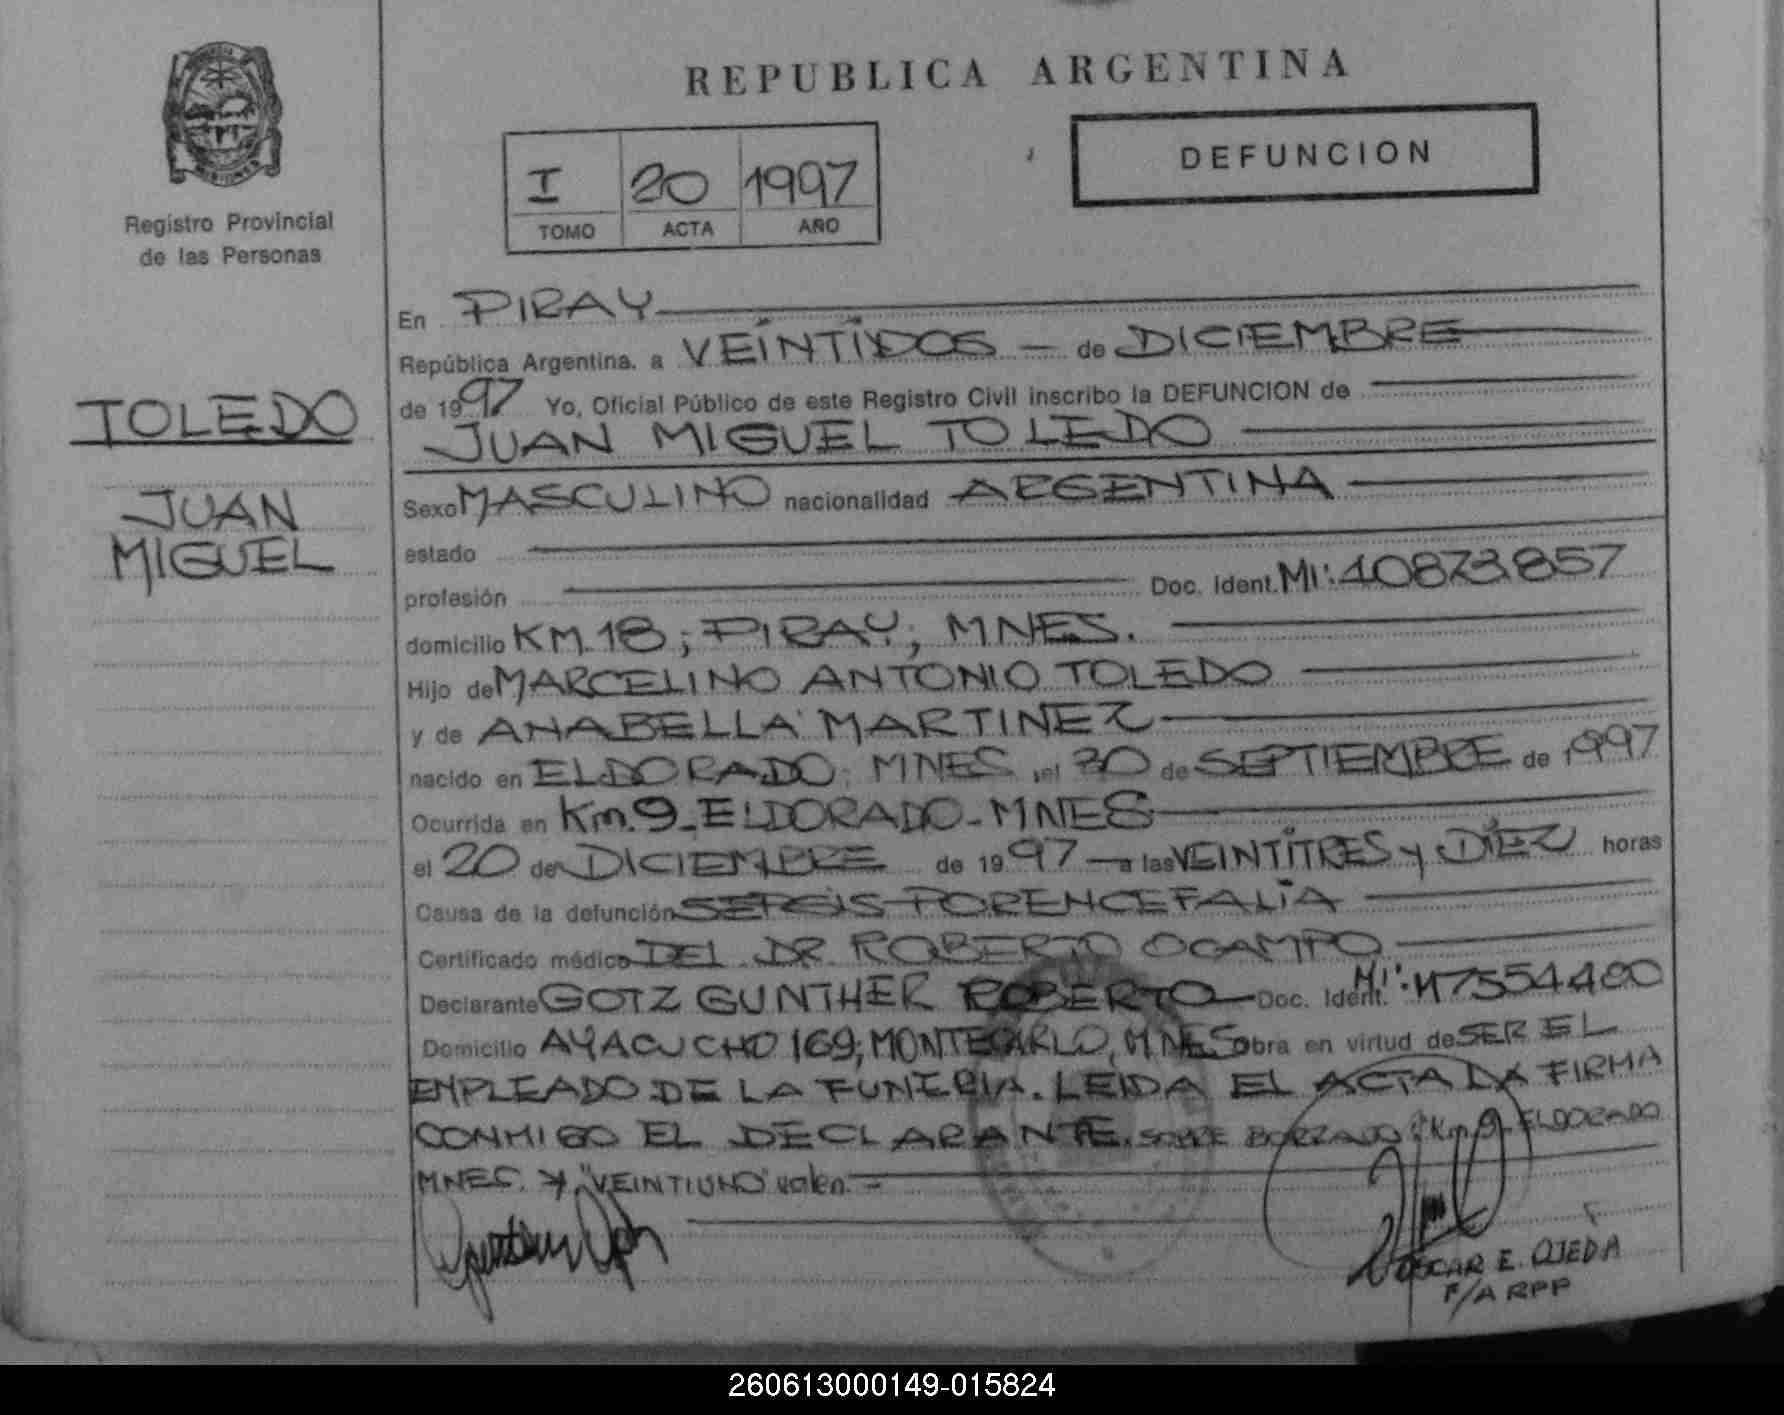 REPUBLICA ARGENTINA
DEFUNCION
I 20 1997
TOMO ACTA AÑO
Registro Provincial
de las Personas
TOLEDO
JUAN
MIGUEL
En PIRAY
República Argentina, a VEINTIDOS - de DICIEMBRE
de 1997 Yo, Oficial Público de este Registro Civil inscribo la DEFUNCION de
JUAN MIGUEL TOLEDO
Sexo MASCULINO nacionalidad ARGENTINA
estado
profesión Doc. Ident. MI: 40873857
domicilio KM.18; PIRAY; MNES.
Hijo de MARCELINO ANTONIO TOLEDO
y de ANABELLA MARTINEZ
nacido en ELDORADO; MNES, el 30 de SEPTIEMBRE de 1997
Ocurrida en Km.9-ELDORADO-MNES
el 20 de DICIEMBRE de 1997 - a las VEINTITRES y DIEZ horas
Causa de la defunción SEPSIS-PORENCEFALIA
Certificado médico DEL DR. ROBERTO OCAMPO
Declarante GOTZ GUNTHER ROBERTO Doc. Ident. MI: M7554480
Domicilio AYACUCHO 169; MONTECARLO, MNES obra en virtud de SER EL
EMPLEADO DE LA FUNEBRIA. LEIDA EL ACTA LA FIRMA
CONMIGO EL DECLARANTE. SOBRE BORRADO: "Km 9-ELDORADO
MNES. Y "VEINTIUNO" valen.-
OSCAR E. OJEDA
F/A RPP
260613000149-015824